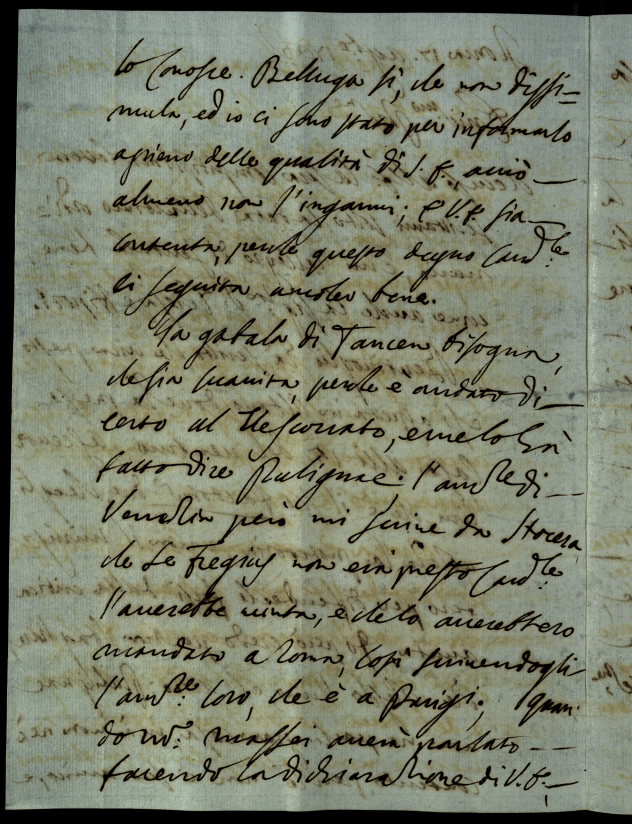 lo conosce. Belluga sì, che non dissi=
mula, ed io ci sono stato per informarlo
appieno delle qualità di S. E. acciò
almeno non l'inganni; e V. E. sia
contenta, perche questo degno Card.le
ci seguita a voler bene.
La gabala di Tancen bisogna,
che sia suanita, perche e andato di
certo al Vescovato, e me lo hà
fatto dire Polignac; l'Amb.re di
Venezia però mi scrive da Stocera
che se Fregius non era presto Card.le
l'averebbe vinta, e che lo averebbero
mandato a Roma, così scrivendogli
l'Amb.re loro, che è a Parigi; quan
do M.r Massei averà parlato
facendo la dichiarazione di V. E.